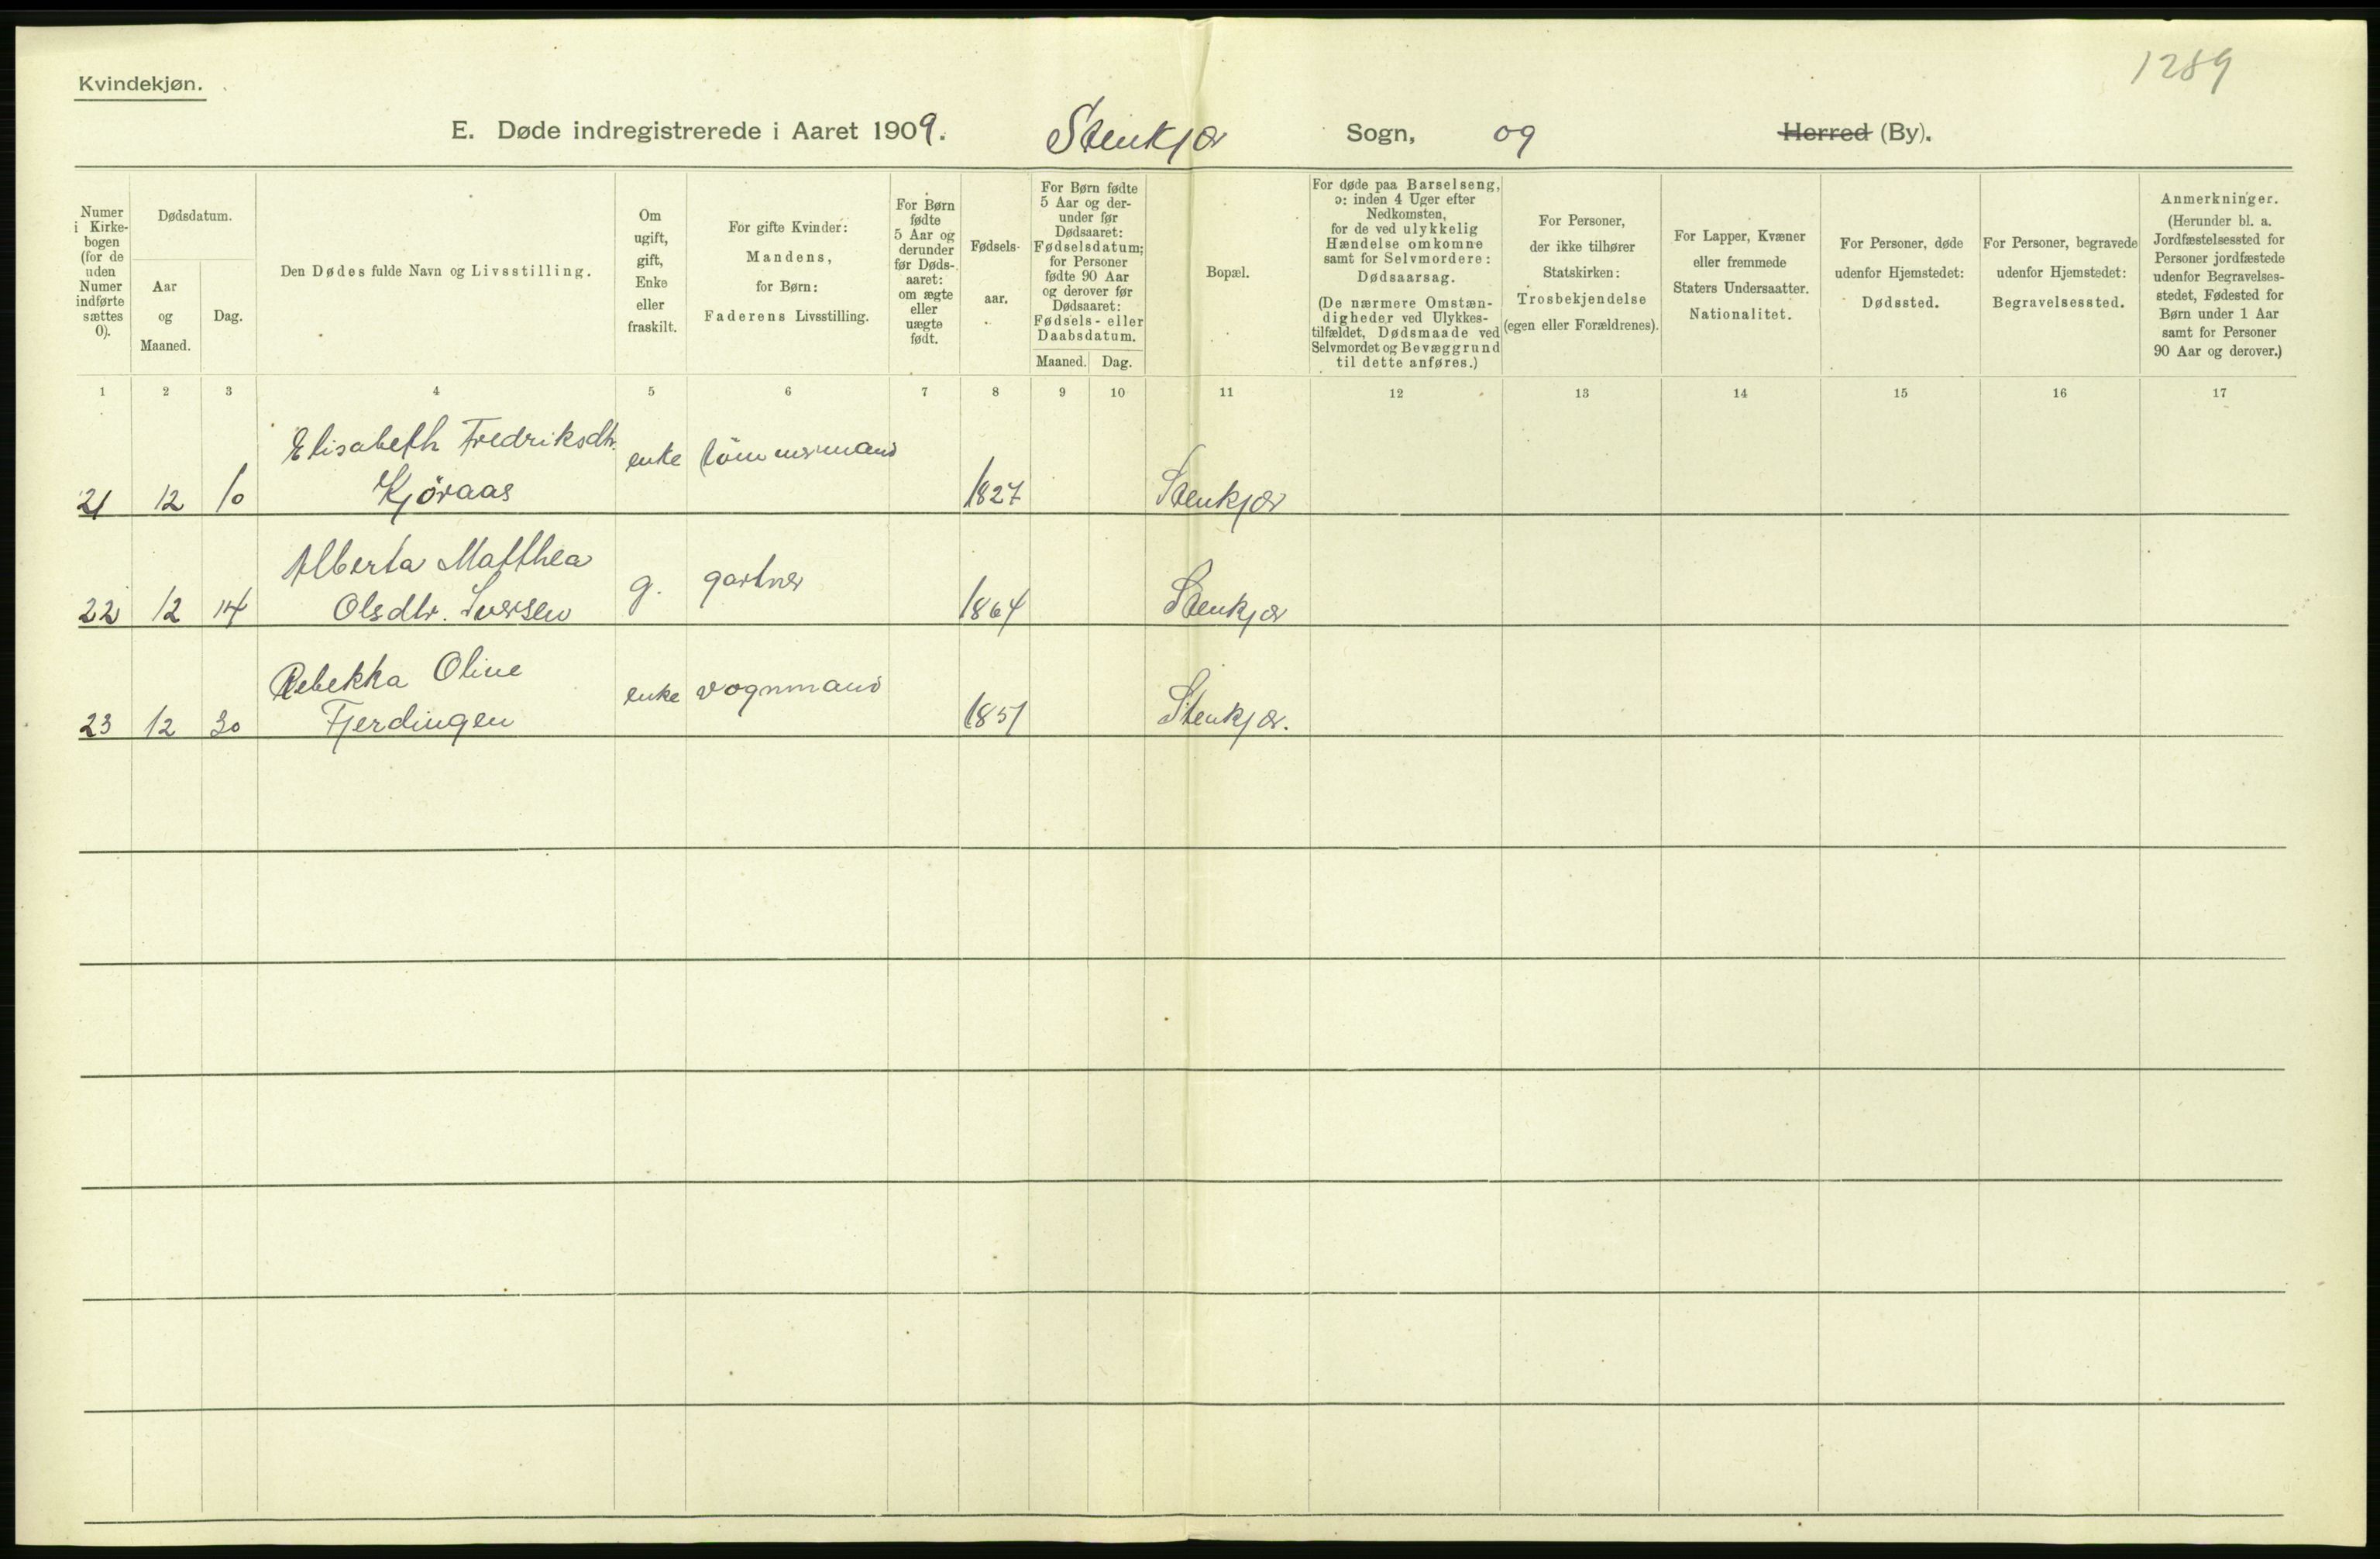 1289
Kvindekjøn.
E. Døde indregistrerede i Aaret 1909. Stenkjær Sogn, og Herred (By).
Numer
i Kirke-
bogen
(for de
uden
Numer
indførte
sættes
0).
Dødsdatum.
Aar
og
Maaned.
Dag.
Den Dødes fulde Navn og Livsstilling.
Om
ugift,
gift,
Enke
eller
fraskilt.
For gifte Kvinder:
Mandens,
for Børn:
Faderens Livsstilling.
For Børn
fødte
5 Aar og
derunder
før Døds-
aaret:
om ægte
eller
uægte
født.
Fødsels-
aar.
For Børn fødte
5 Aar og der-
under før
Dødsaaret:
Fødselsdatum;
for Personer
fødte 90 Aar
og derover før
Dødsaaret:
Fødsels- eller
Daabsdatum.
Maaned. Dag.
Bopæl.
For døde paa Barselseng,
ɔ: inden 4 Uger efter
Nedkomsten,
for de ved ulykkelig
Hændelse omkomne
samt for Selvmordere:
Dødsaarsag.
(De nærmere Omstæn-
digheder ved Ulykkes-
tilfældet, Dødsmaade ved
Selvmordet og Bevæggrund
til dette anføres.)
For Personer,
der ikke tilhører
Statskirken:
Trosbekjendelse
(egen eller Forældrenes).
For Lapper, Kvæner
eller fremmede
Staters Undersaatter.
Nationalitet.
For Personer, døde
udenfor Hjemstedet:
Dødssted.
For Personer, begravede
udenfor Hjemstedet:
Begravelsessted.
Anmerkninger.
(Herunder bl. a.
Jordfæstelsessted for
Personer jordfæstede
udenfor Begravelses-
stedet, Fødested for
Børn under 1 Aar
samt for Personer
90 Aar og derover.)
1 2 3 4 5 6 7 8 9 10 11 12 13 14 15 16 17
Elisabeth Fredriksdtr. enke tömmermand
21 12 10 Kjöraas 1827 Stenkjær
Alberta Matthea g. gartner
22 12 14 Olsdtr. Iversen 1864 Stenkjær
Rebekka Oline enke vognmand
23 12 30 Fjerdingen 1851 Stenkjær.